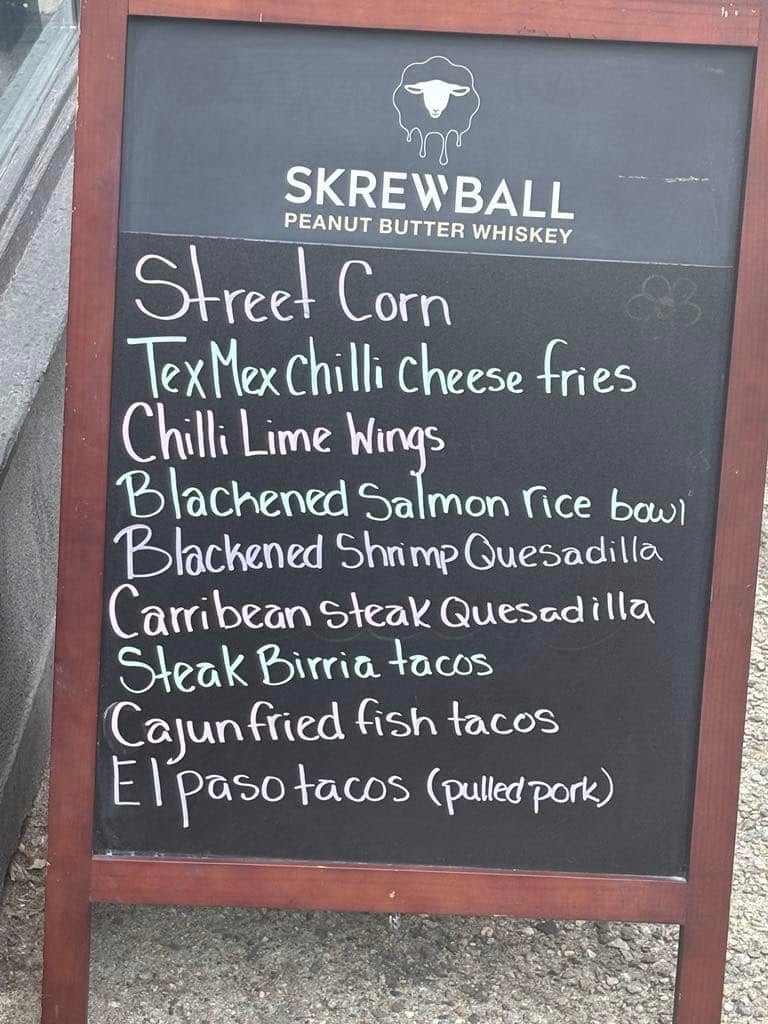 SKREWBALL
PEANUT BUTTER WHISKEY
Street Corn
TexMex Chilli Cheese fries
Chilli Lime Wings
Blackened Salmon rice bowl
Blackened Shrimp Quesadilla
Carribean steak Quesadilla
Steak Birria tacos
Cajun fried fish tacos
El paso tacos (pulled pork)